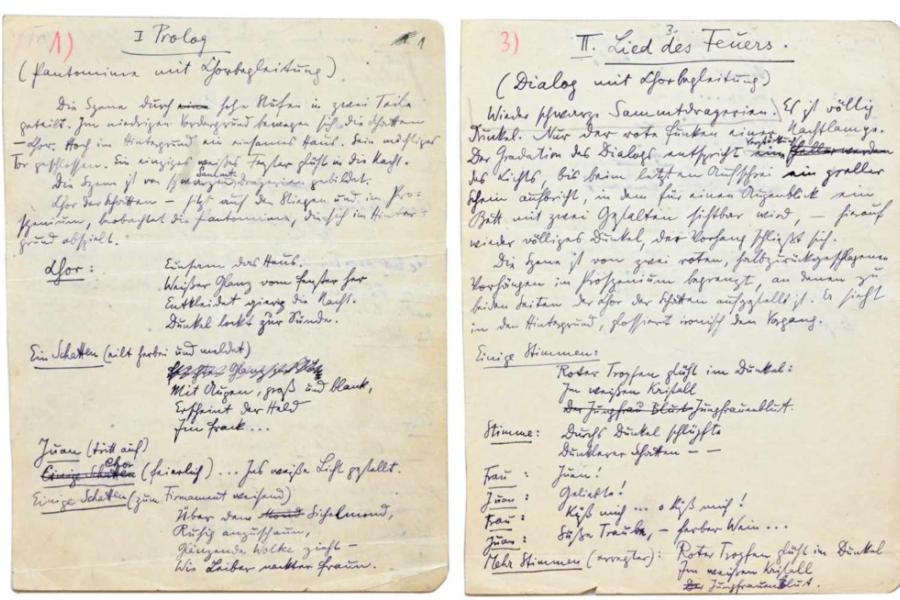 1)
I Prolog
1
(Pantomime mit Chorbegleitung)
Die Szene durch eine hohe Stufen in zwei Teile
geteilt. Im niedrigen Vordergrund bewegen sich die Schatten
–Chor. Hoch im Hintergrund ein einsames Haus. Sein mächtiges
Tor geschlossen. Ein einziges weißes Fenster glüht in die Nacht.
Die Szene ist von schwarzen Samtdragerien gebildet.
Chor der Schatten – sitzt auf den Stiegen und im Pro-
szenium, beobachtet die Pantomime, die sich im Hinter-
grund abspielt.
Chor:
Einsam das Haus.
Weißer Glanz vom Fenster her
Entkleidet gierig die Nacht.
Dunkel lockt zur Sünde.
Ein Schatten (eilt herbei und meldet)
Mit Augen, groß und blank,
Erscheint der Held
Im Frack...
Juan (tritt auf)
Einige Schatten Chor (feierlich) ... Ins weiße Licht gestellt.
Einige Schatten (zum Firmament weisend)
Über dem Mond Sichelmond,
Ruhig anzuschaun,
Glänzende Wolke zieht –
Wie Leiber nackter Fraun.
3)
3.
II. Lied des Feuers.
(Dialog mit Chorbegleitung)
Wieder schwarze Sammtdragerien. Es ist völlig
Dunkel. Nur der rote Funken einer Nachtlampe.
Der Gradation des Dialogs entspricht ein Hellerwerden
des Lichts, bis beim letzten Aufschrei ein greller
Schein aufbricht, in dem für einen Augenblick ein
Bett mit zwei Gestalten sichtbar wird, – hierauf
wieder völliges Dunkel, der Vorhang schließt sich.
Die Szene ist von zwei roten, halbzurückgeschlagenen
Vorhängen im Proszenium begrenzt, an denen zu
beiden Seiten der Chor der Schatten aufgestellt ist. Er sieht
in den Hintergrund, glossiert ironisch den Vorgang.
Einige Stimmen:
Roter Tropfen glüht im Dunkel:
Im weißen Kristall
Der Jungfrau Blut Jungfrauenblut.
Stimme: Durchs Dunkel schlüpfte
Dunklerer Schatten – –
Frau: Juan!
Juan: Geliebte!
Frau: Küß mich ... o Küß mich!
Juan: Süße Traube, – herber Wein...
Mehr Stimmen (erregter): Roter Tropfen glüht im Dunkel
Im weißen Kristall
Der Jungfrauenblut.